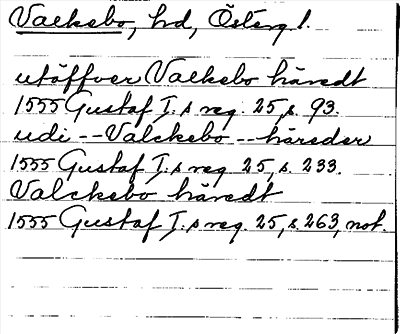 Valkebo, hd, Östergl.
utöffver Valkebo häredt
1555 Gustaf I:s reg. 25, s. 93.
udi -- Valckebo -- häreder
1555 Gustaf I:s reg. 25, s. 233.
Valckebo häredt
1555 Gustaf I:s reg. 25, s. 263, not.